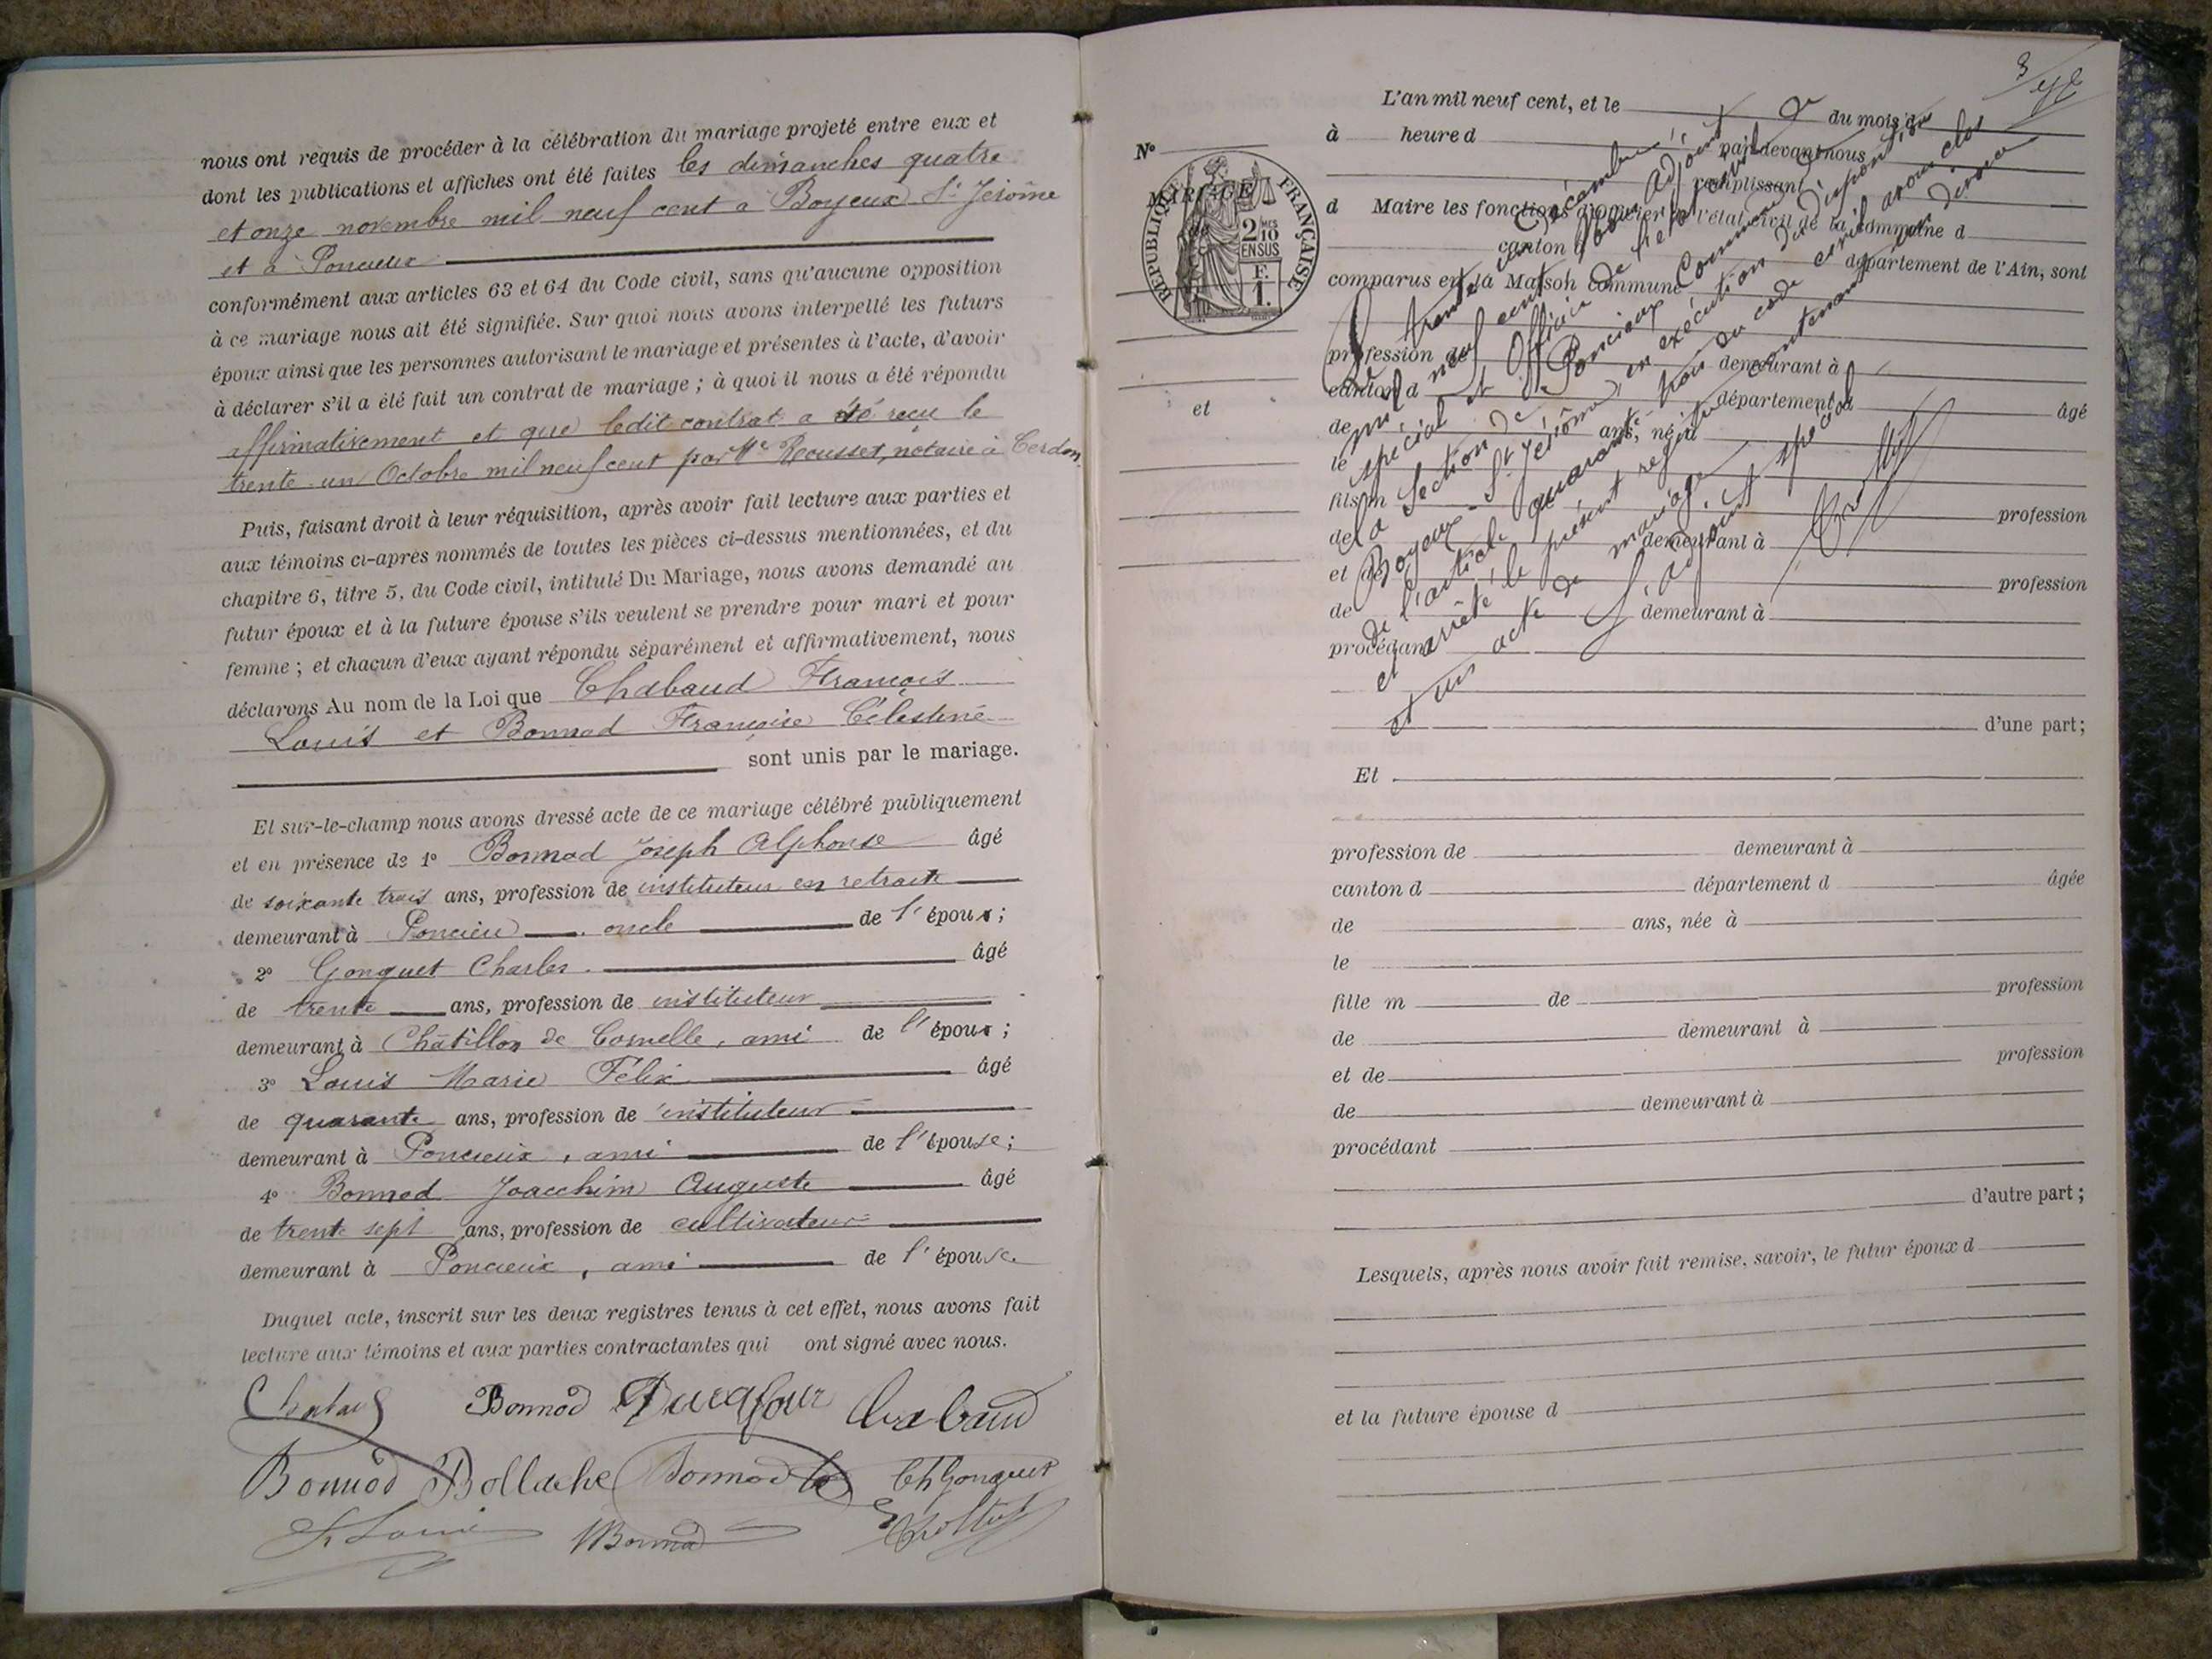 nous ont requis de procéder à la célébration du mariage projeté entre eux et
dont les publications et affiches ont été faites les dimanches quatre
et onze novembre mil neuf cent à Boyeux St Jérôme
et à Poncieux
conformément aux articles 63 et 64 du Code civil, sans qu'aucune opposition
à ce mariage nous ait été signifiée. Sur quoi nous avons interpellé les futurs
époux ainsi que les personnes autorisant le mariage et présentes à l'acte, d'avoir
à déclarer s'il a été fait un contrat de mariage ; à quoi il nous a été répondu
affirmativement et que ledit contrat a été reçu le
trente un Octobre mil neuf cent par Me Rousset, notaire à Cerdon.
Puis, faisant droit à leur réquisition, après avoir fait lecture aux parties et
aux témoins ci-après nommés de toutes les pièces ci-dessus mentionnées, et du
chapitre 6, titre 5, du Code civil, intitulé Du Mariage, nous avons demandé au
futur époux et à la future épouse s'ils veulent se prendre pour mari et pour
femme ; et chacun d'eux ayant répondu séparément et affirmativement, nous
déclarons Au nom de la Loi que Chabaud François
Louis et Bonnod Françoise Célestine
sont unis par le mariage.
Et sur-le-champ nous avons dressé acte de ce mariage célébré publiquement
et en présence de 1° Bonnod Joseph Alphonse âgé
de soixante trois ans, profession de instituteur en retraite
demeurant à Poncieu oncle de l'époux ;
2° Gonguet Charles âgé
de trente ans, profession de instituteur
demeurant à Châtillon de Cornelle, ami de l'époux ;
3° Louis Marie Félix âgé
de quarante ans, profession de instituteur
demeurant à Poncieux, ami de l'épouse ;
4° Bonnod Joacchim Auguste âgé
de trente sept ans, profession de cultivateur
demeurant à Poncieux, ami de l'épouse.
Duquel acte, inscrit sur les deux registres tenus à cet effet, nous avons fait
lecture aux témoins et aux parties contractantes qui ont signé avec nous.
Chabaud Bonnod Ducafour Chabaud
Bonnod Bollache Bonnod Ch Gonguet
Louis Bonnod
3
L'an mil neuf cent, et le du mois d
à heure d par devant nous
N° remplissant
MARIAGE
RÉPUBLIQUE FRANÇAISE
2/10 MES EN SUS
F. 1.
d Maire les fonctions d'officier de l'état civil de la commune d
canton d département de l'Ain, sont
comparus en la Maison commune
profession de demeurant à
canton d département d âgé
et
de ans, né à
le
fils m profession
de demeurant à
et de profession
de demeurant à
procédant
d'une part ;
Ce trente un décembre
mil neuf cent, Nous Adjoint
spécial et Officier de l'état civil
de la section de Poncieux Commune de
Boyeux - St Jérôme, en exécution du disposition
de l'article quarante-trois du code civil avons clos
et arrêté le présent registre contenant
et un acte de mariage
L'adjoint spécial
Et
profession de demeurant à
canton d département d âgée
de ans, née à
le
fille m de profession
de demeurant à
et de profession
de demeurant à
procédant
d'autre part ;
Lesquels, après nous avoir fait remise, savoir, le futur époux d
et la future épouse d